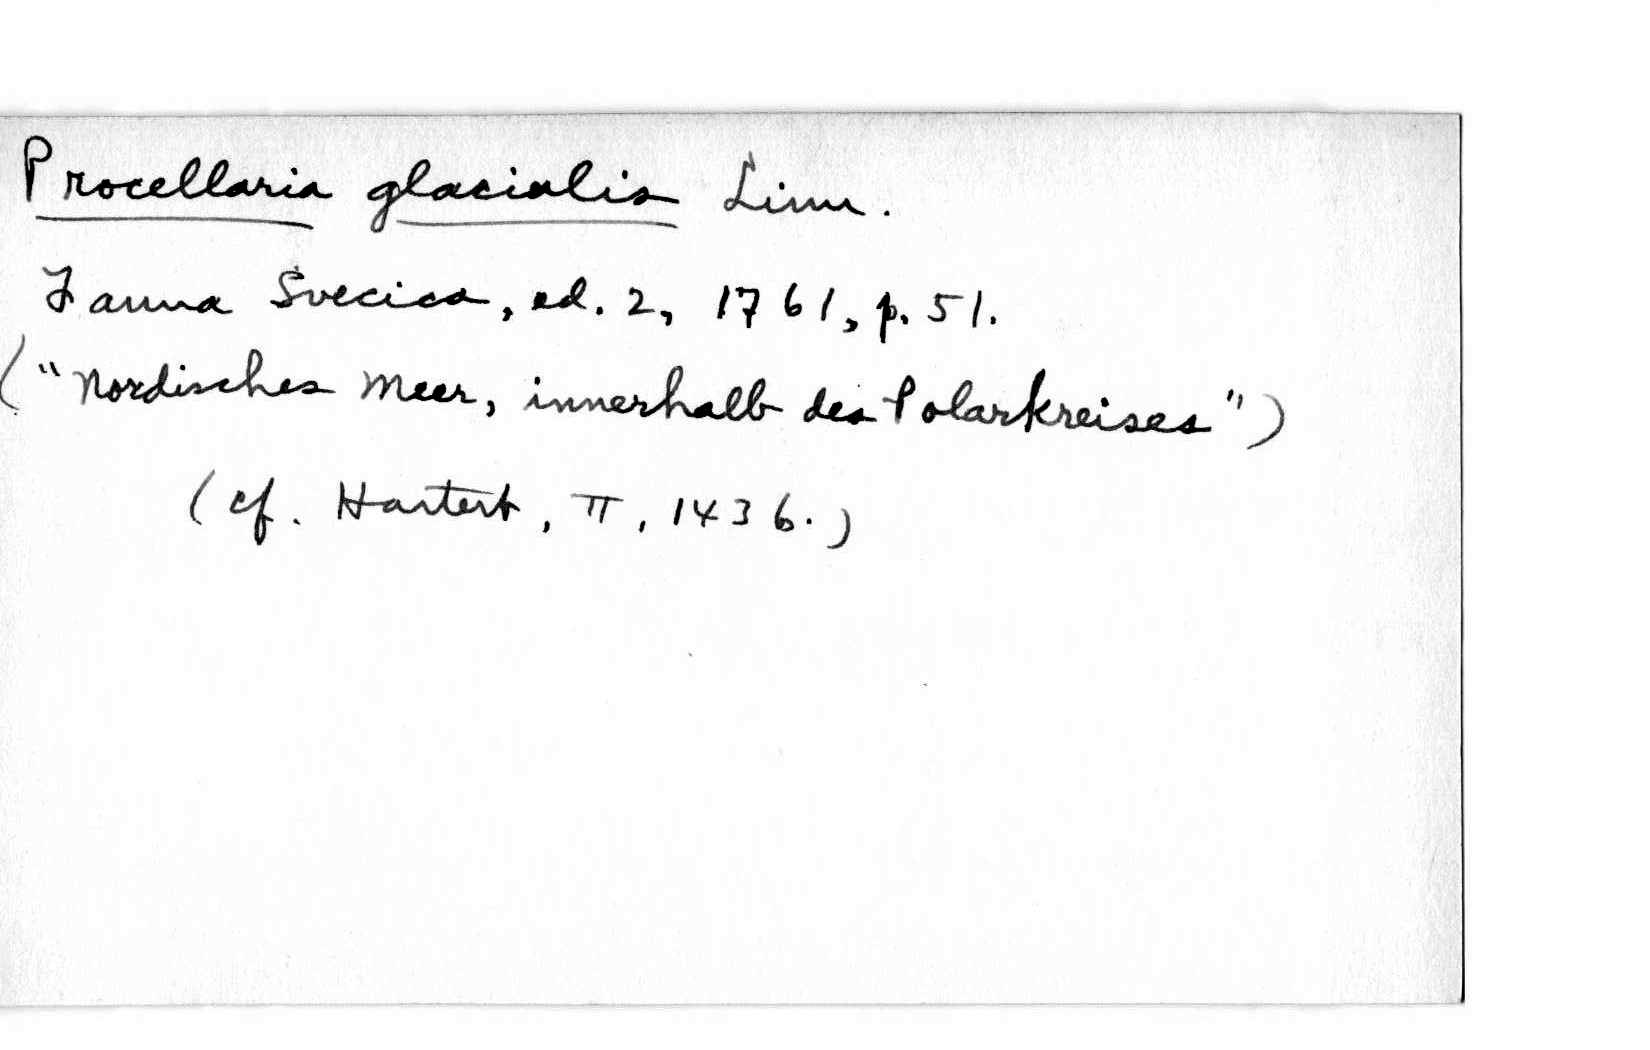 Procellaria glacialis Linn.
Fauna Svecica, ed. 2, 1761, p. 51.
("Nordisches Meer, innerhalb des Polarkreises")
(cf. Hartert, II, 1436.)